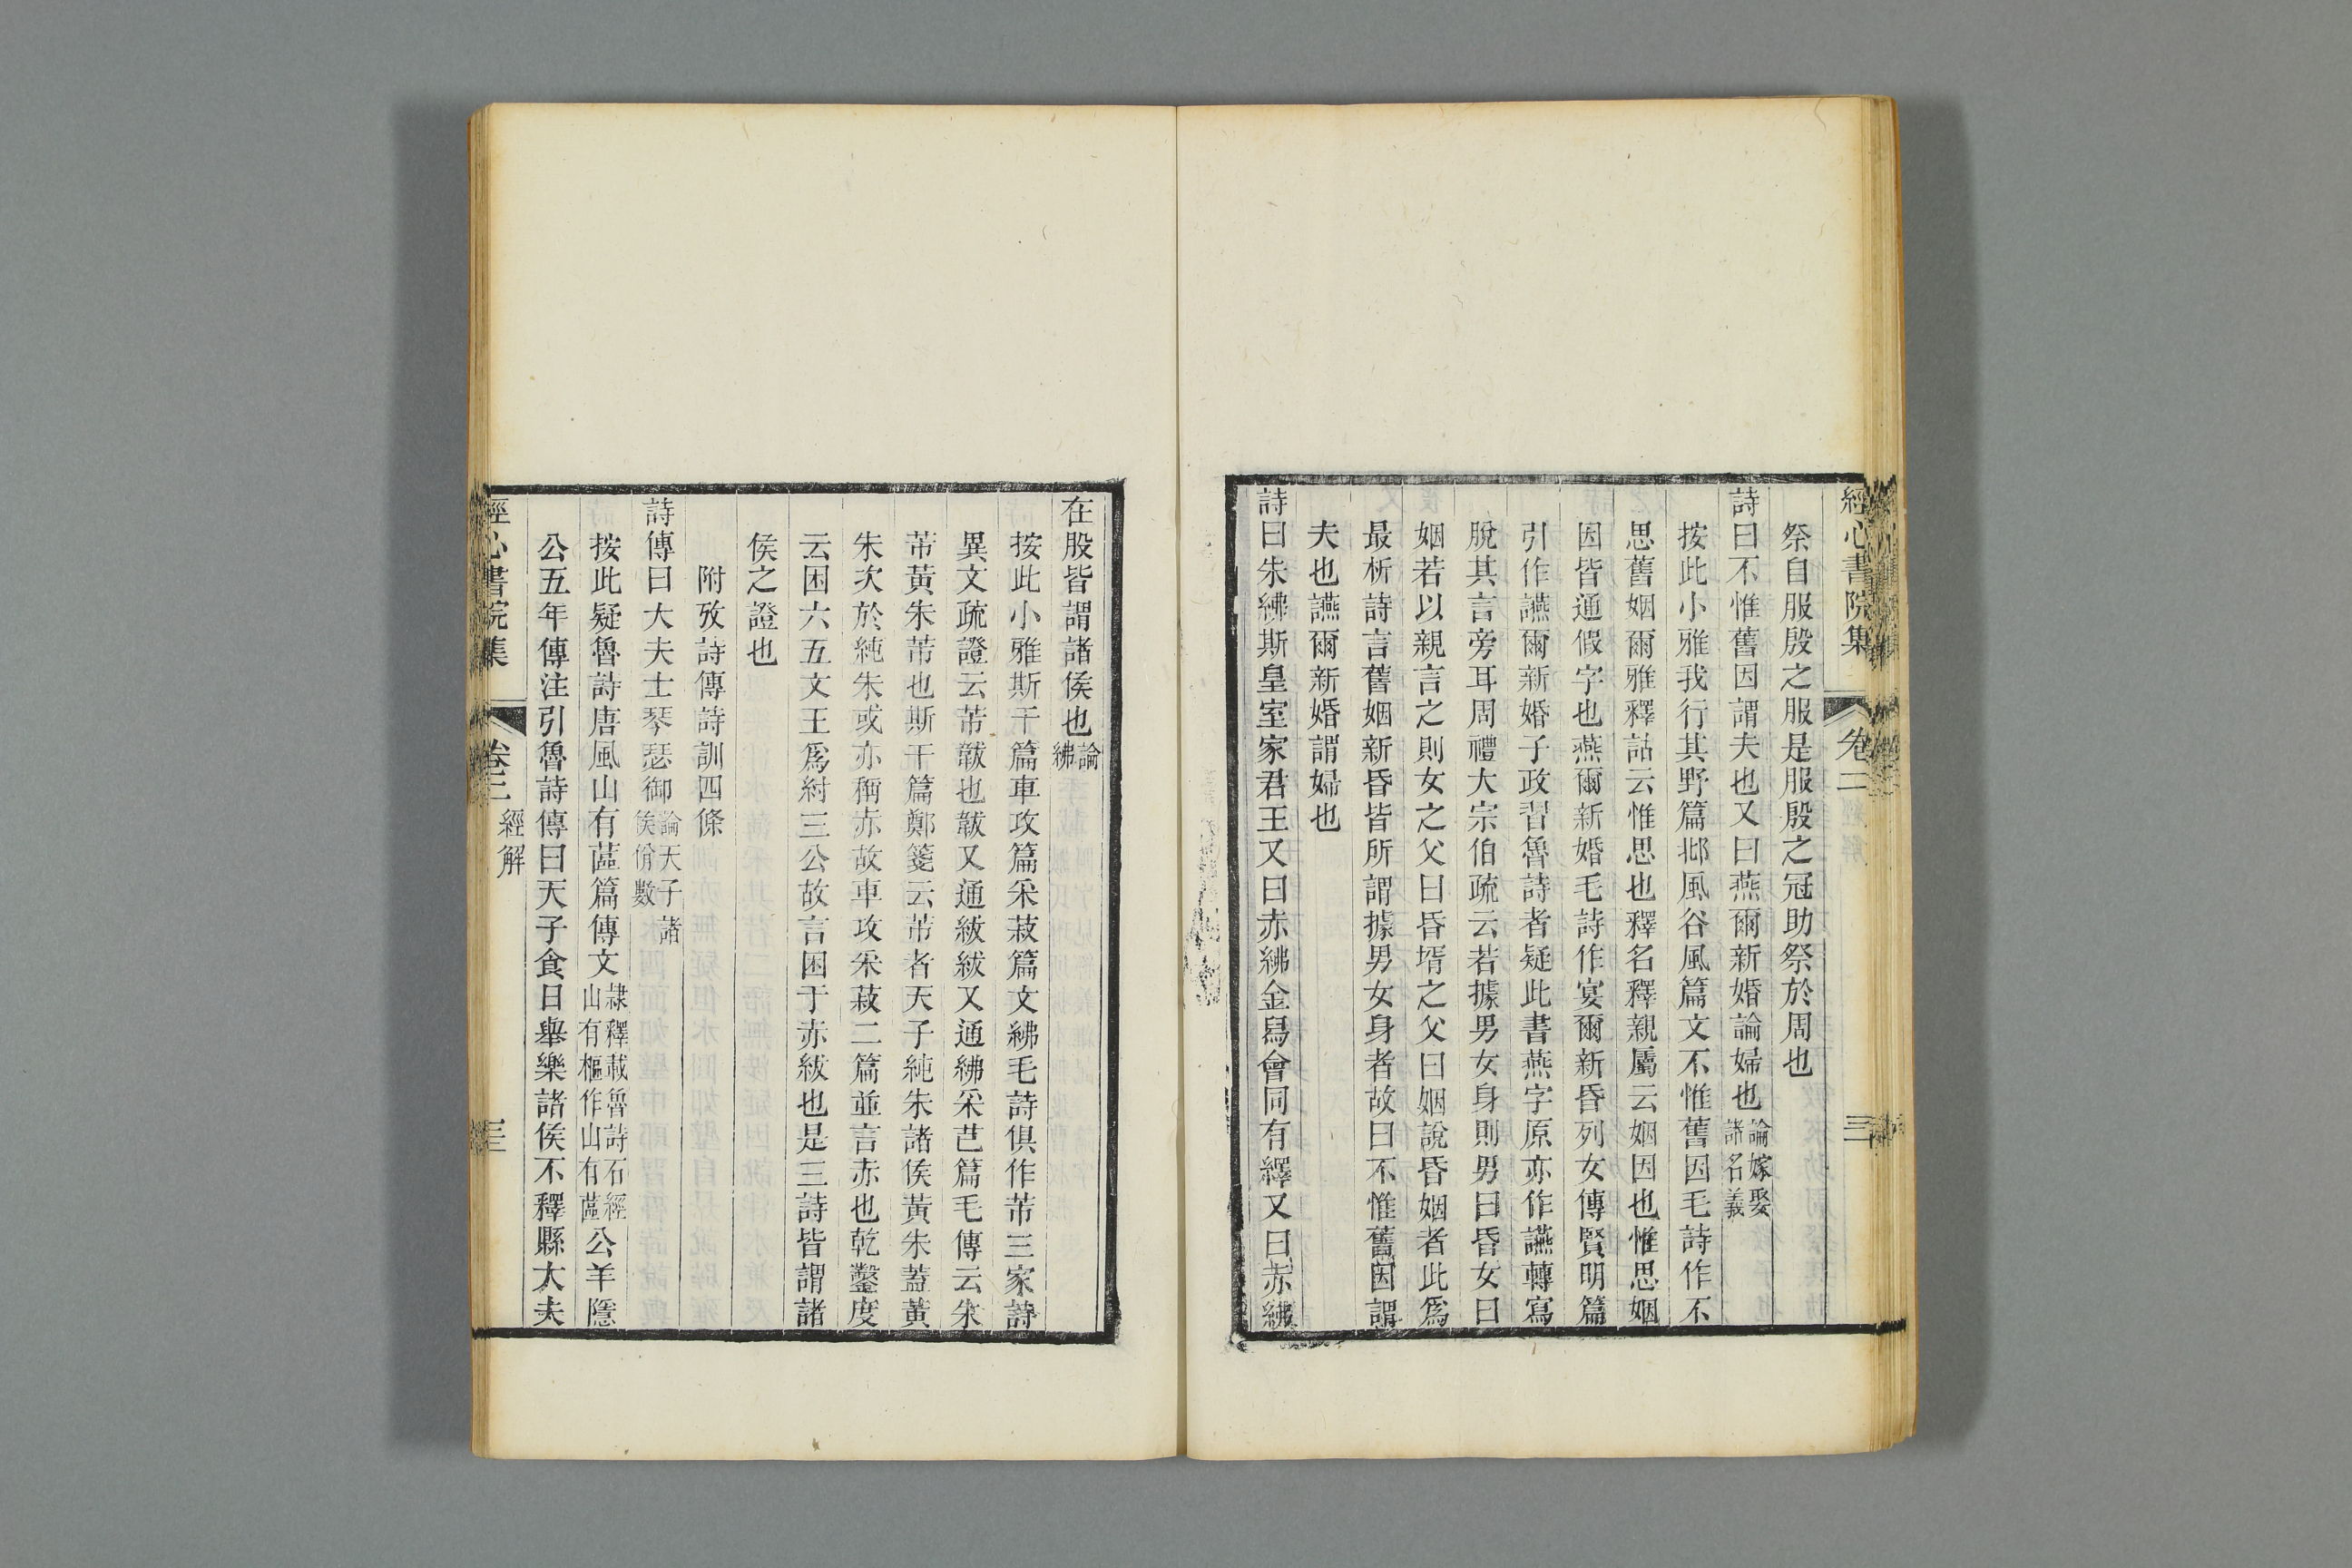 經心書院集 卷二 三
祭自服殷之服是服殷之冠助祭於周也
詩曰不惟舊因謂夫也又曰燕爾新婚論婦也論嫁娶諸名義
按此小雅我行其野篇邶風谷風篇文不惟舊因毛詩作不
思舊姻爾雅釋詁云惟思也釋名釋親屬云姻因也惟思姻
因皆通假字也燕爾新婚毛詩作宴爾新昏列女傳賢明篇
引作讌爾新婚子政習魯詩者疑此書燕字原亦作讌轉寫
脫其言旁耳周禮大宗伯疏云若據男女身則男曰昏女曰
姻若以親言之則女之父曰昏壻之父曰姻說昏姻者此爲
最析詩言舊姻新昏皆所謂據男女身者故曰不惟舊因謂
夫也讌爾新婚謂婦也
詩曰朱紼斯皇室家君王又曰赤紼金舄會同有繹又曰赤紼
在股皆謂諸侯也論紼
按此小雅斯干篇車攻篇采菽篇文紼毛詩俱作芾三家詩
異文疏證云芾韍也韍又通紱紱又通紼采芑篇毛傳云朱
芾黃朱芾也斯干篇鄭箋云芾者天子純朱諸侯黃朱蓋黃
朱次於純朱或亦稱赤故車攻采菽二篇並言赤也乾鑿度
云困六五文王爲紂三公故言困于赤紱也是三詩皆謂諸
侯之證也
附攷詩傳詩訓四條
詩傳曰大夫士琴瑟御論天子諸侯佾數
按此疑魯詩唐風山有蓲篇傳文隸釋載魯詩石經山有樞作山有蓲公羊隱
公五年傳注引魯詩傳曰天子食日舉樂諸侯不釋縣大夫
經心書院集 卷二 經解 三